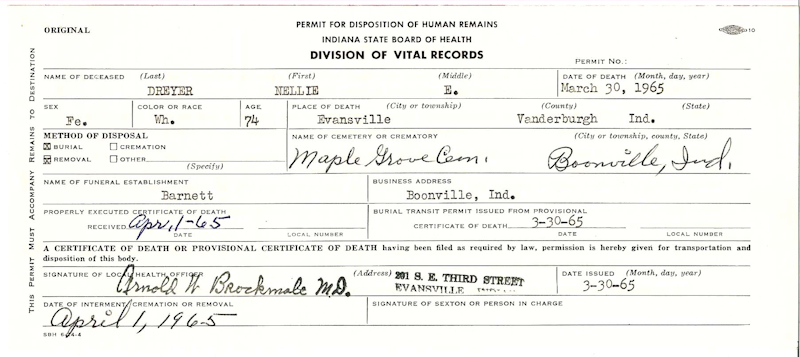 ORIGINAL
PERMIT FOR DISPOSITION OF HUMAN REMAINS
INDIANA STATE BOARD OF HEALTH
DIVISION OF VITAL RECORDS
10
PERMIT NO.:
THIS PERMIT MUST ACCOMPANY REMAINS TO DESTINATION
NAME OF DECEASED (Last) (First) (Middle) DATE OF DEATH (Month, day, year)
DREYER NELLIE E. March 30, 1965
SEX COLOR OR RACE AGE PLACE OF DEATH (City or township) (County) (State)
Fe. Wh. 74 Evansville Vanderburgh Ind.
METHOD OF DISPOSAL NAME OF CEMETERY OR CREMATORY (City or township, county, State)
BURIAL CREMATION
REMOVAL OTHER (Specify)
Maple Grove Cem. Boonville, Ind.
NAME OF FUNERAL ESTABLISHMENT BUSINESS ADDRESS
Barnett Boonville, Ind.
PROPERLY EXECUTED CERTIFICATE OF DEATH BURIAL TRANSIT PERMIT ISSUED FROM PROVISIONAL
RECEIVED Apr, 1-65 CERTIFICATE OF DEATH 3-30-65
DATE LOCAL NUMBER DATE LOCAL NUMBER
A CERTIFICATE OF DEATH OR PROVISIONAL CERTIFICATE OF DEATH having been filed as required by law, permission is hereby given for transportation and
disposition of this body.
SIGNATURE OF LOCAL HEALTH OFFICER (Address) 201 S. E. THIRD STREET DATE ISSUED (Month, day, year)
Arnold W Brockmole M.D. EVANSVILLE 3-30-65
DATE OF INTERMENT, CREMATION OR REMOVAL SIGNATURE OF SEXTON OR PERSON IN CHARGE
April 1, 1965
SBH